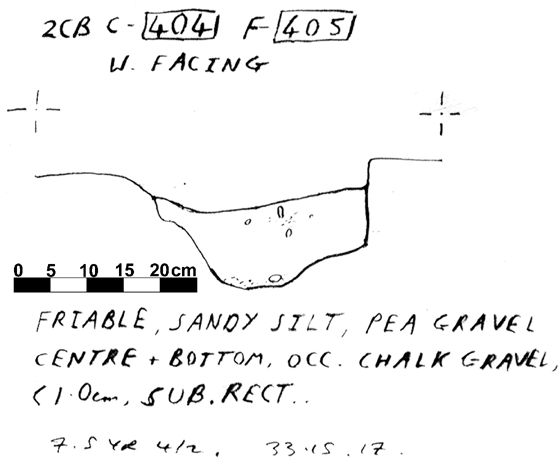 2CB C-404 F-405
W. FACING
0 5 10 15 20cm
FRIABLE, SANDY SILT, PEA GRAVEL
CENTRE + BOTTOM, OCC. CHALK GRAVEL,
<1.0cm, SUB.RECT..
7.5 YR 4/2. 33.15.17.